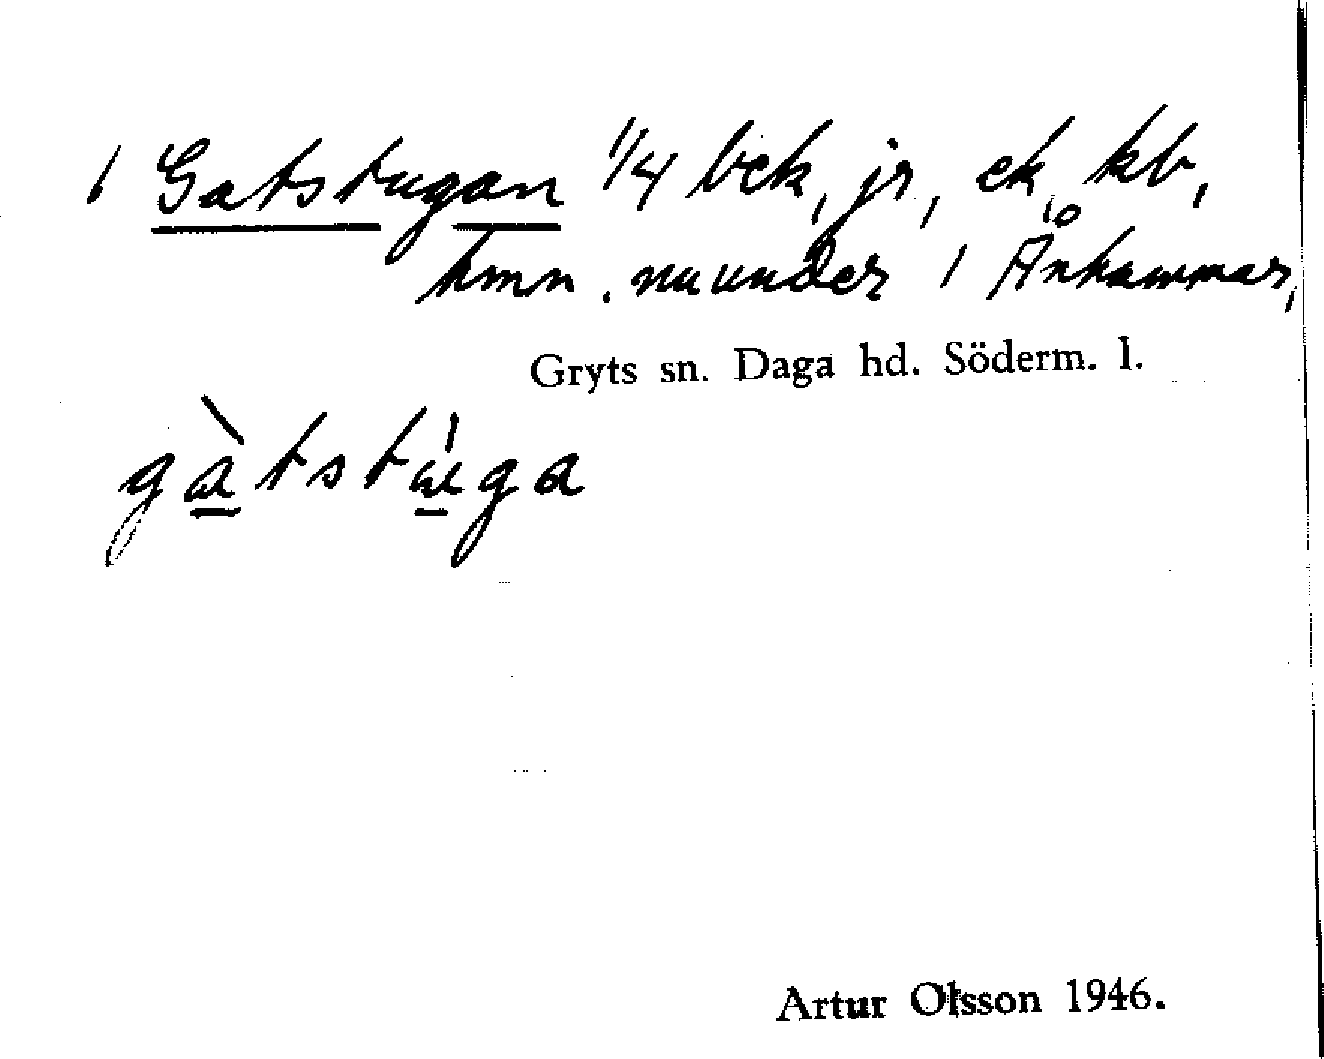 1 Gatstugan 1/4 bek, jr, ek, kb,
hmn. nu under 1 Ånhammar,
Gryts sn. Daga hd. Söderm. l.
gàtstúga
Artur Olsson 1946.